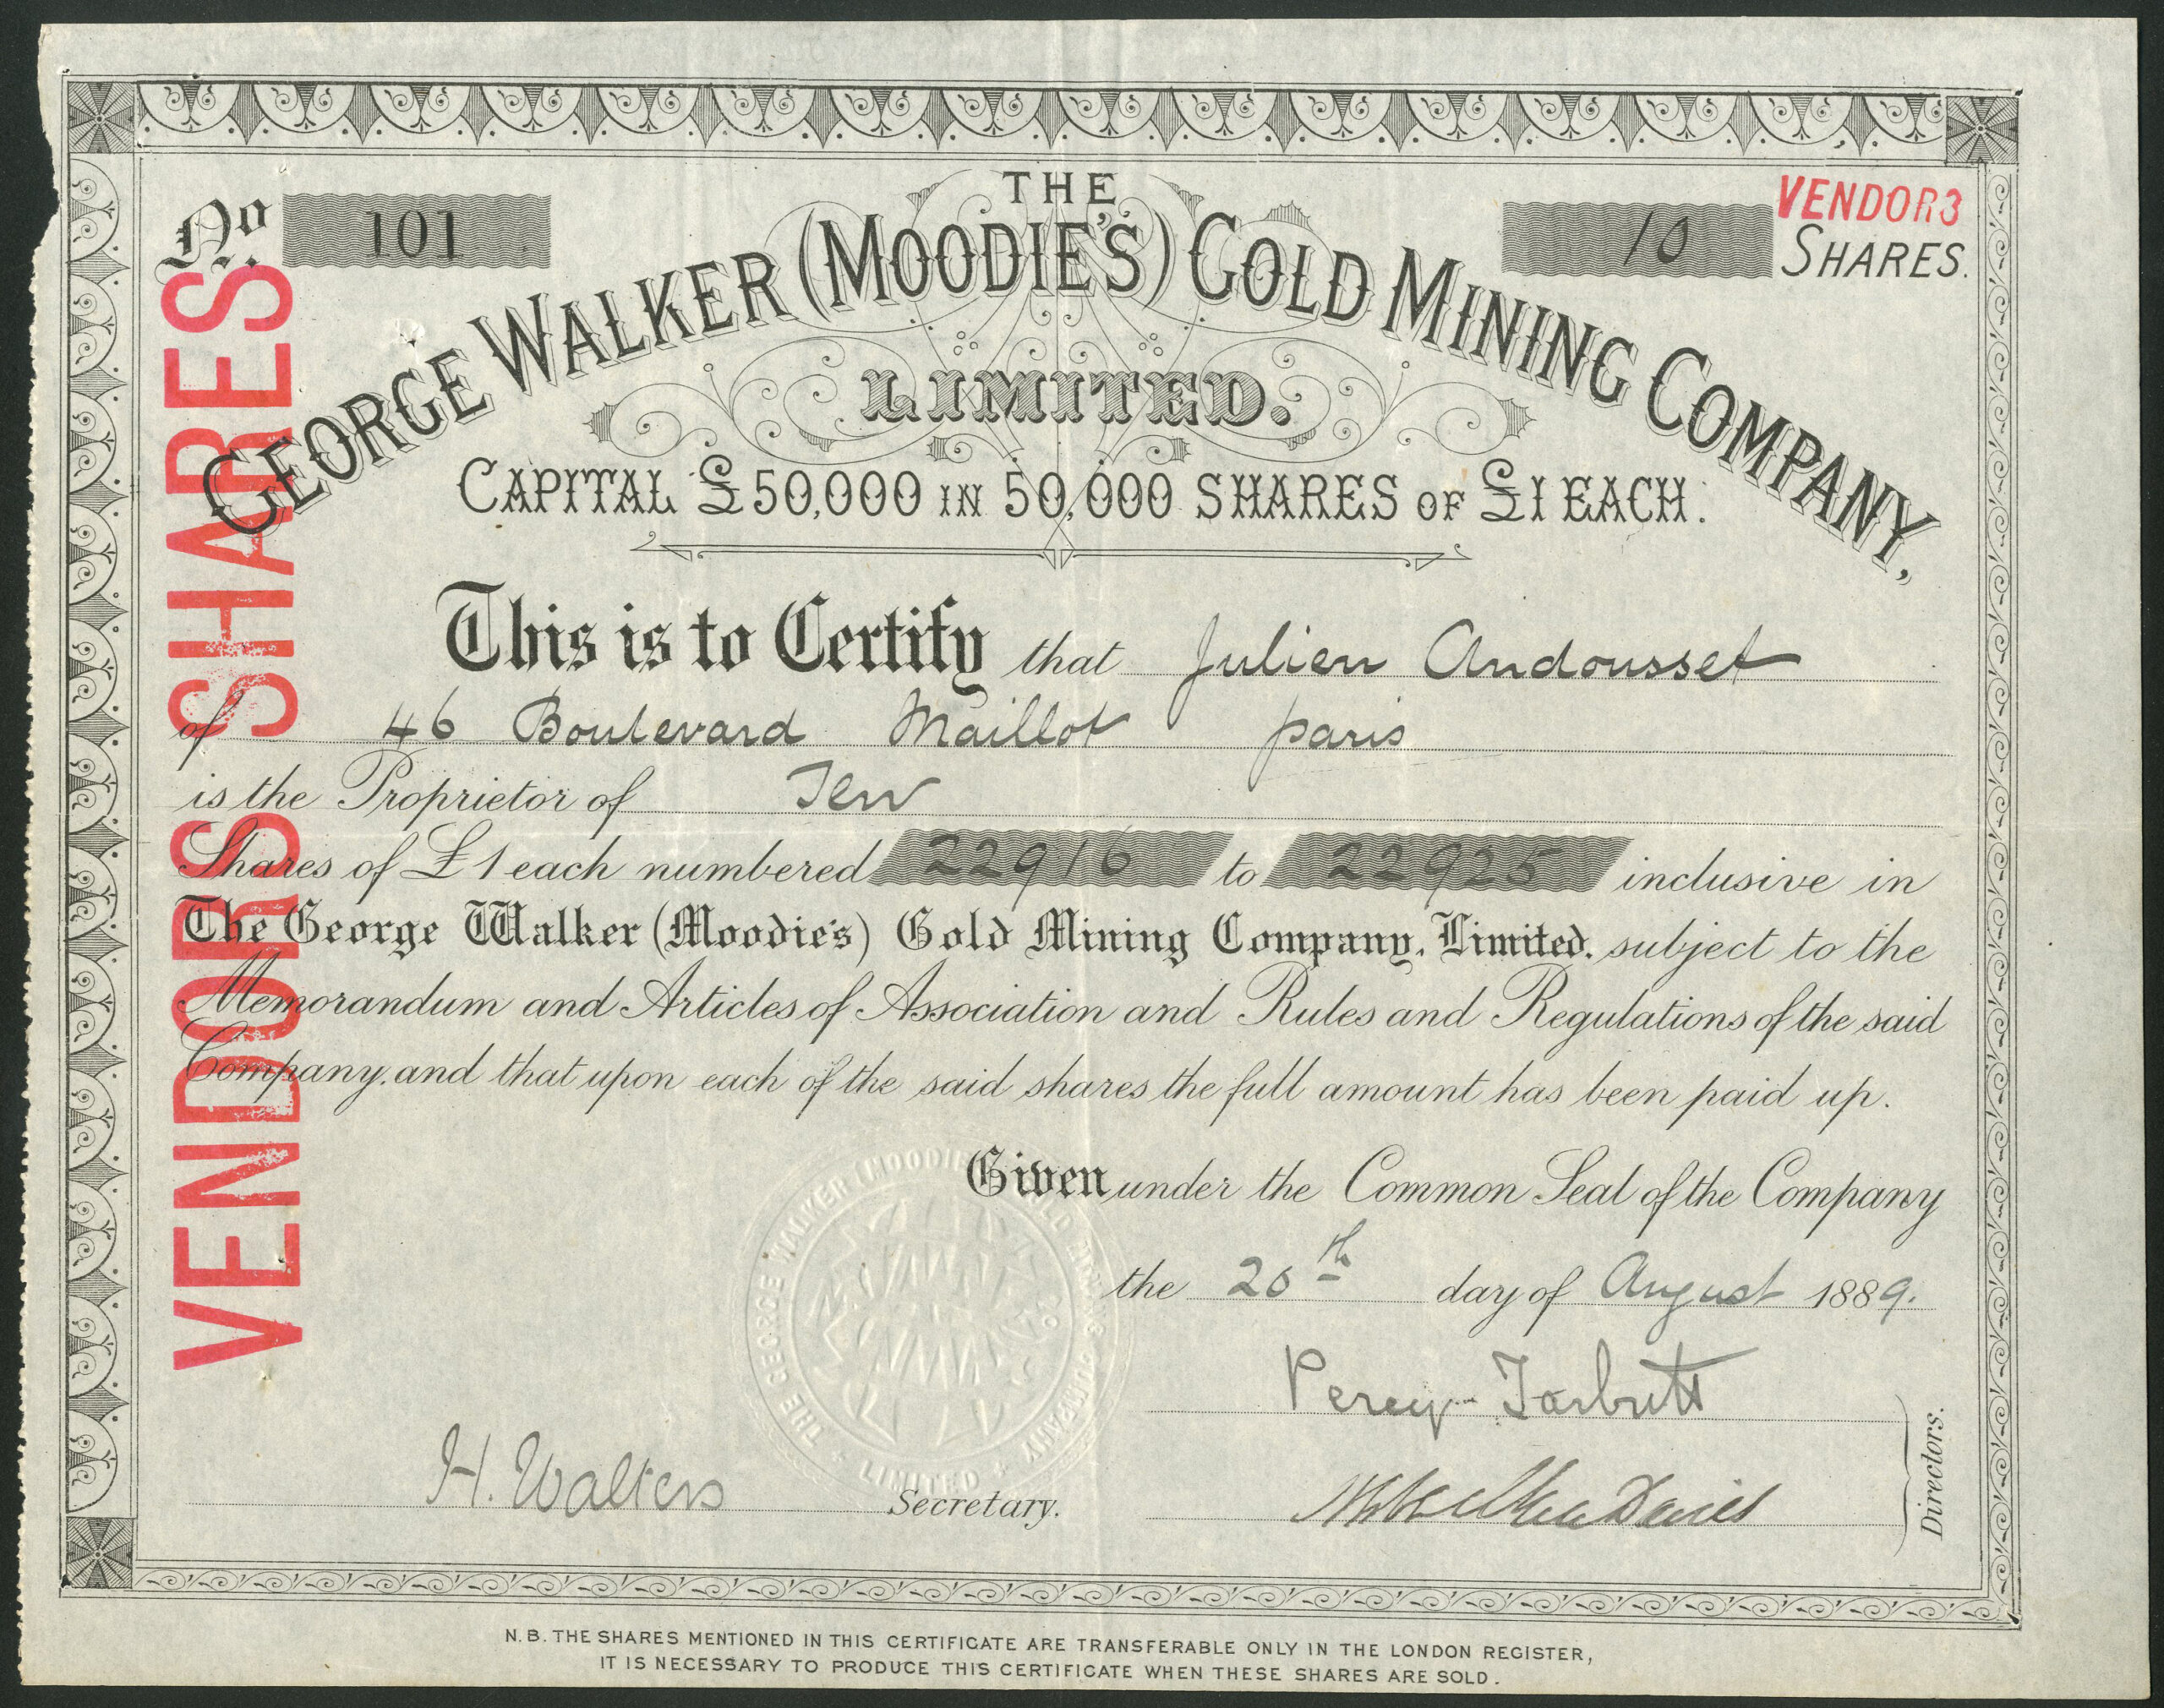 No. 101
THE
GEORGE WALKER (MOODIE'S) GOLD MINING COMPANY,
LIMITED.
10 VENDORS
SHARES.
CAPITAL £50,000 IN 50,000 SHARES OF £1 EACH.
VENDORS SHARES
This is to Certify that Julien Andousset
of 46 Boulevard Maillot Paris
is the Proprietor of Ten
Shares of £1 each numbered 22916 to 22925 inclusive in
The George Walker (Moodie's) Gold Mining Company, Limited, subject to the
Memorandum and Articles of Association and Rules and Regulations of the said
Company, and that upon each of the said shares the full amount has been paid up.
Given under the Common Seal of the Company
the 20th day of August 1889.
Percy Tarbutt
H. Walters Secretary.
Davies
Directors.
THE GEORGE WALKER (MOODIE'S) GOLD MINING COMPANY LIMITED
N.B. THE SHARES MENTIONED IN THIS CERTIFICATE ARE TRANSFERABLE ONLY IN THE LONDON REGISTER,
IT IS NECESSARY TO PRODUCE THIS CERTIFICATE WHEN THESE SHARES ARE SOLD.